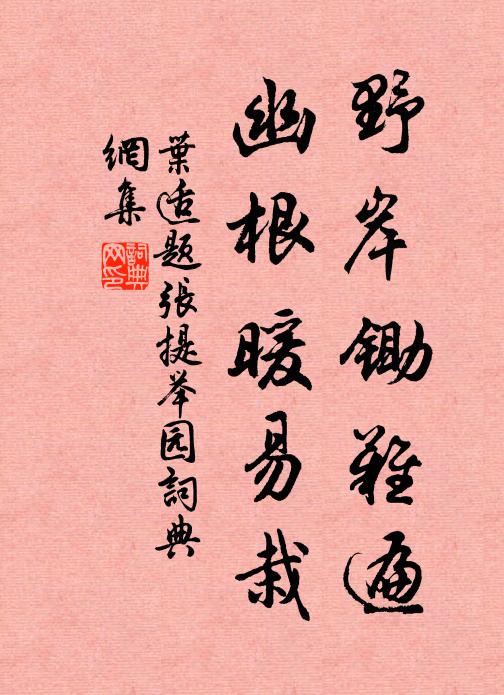 野岸鋤難遍
幽根暖易栽
葉适題張提举园詞典
網集
詞典
网印